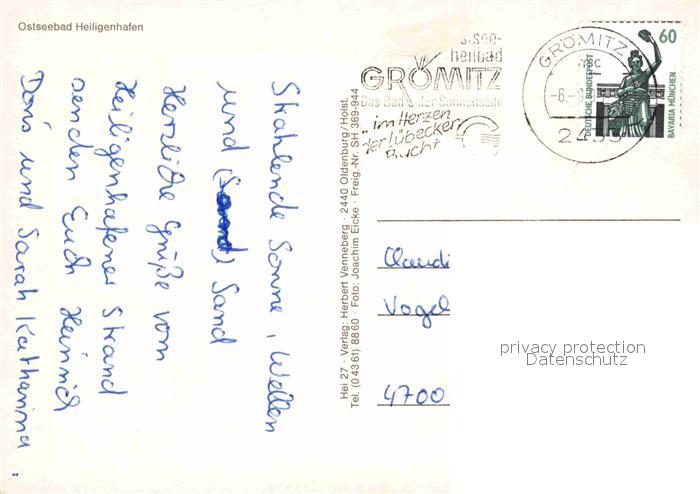 Ostseebad Heiligenhafen
Strahlende Sonne, Wellen
und (Sand) Sand
Herzliche Grüße vom
Heiligenhafener Strand
senden Euch Heinrich
Doris und Sarah Katharina
Hei 27 · Verlag: Herbert Venneberg · 2440 Oldenburg/Holst.
Tel. (04361) 8860 · Foto: Joachim Eicke · Freig.-Nr. SH 369-944
GRÖMITZ
Das Bad der Sonnenseite
... im Herzen
der Lübecker
Bucht
GRÖMITZ
-6.-
60
DEUTSCHE BUNDESPOST
BAVARIA MÜNCHEN
Claudi
Vogel
4700
privacy protection
Datenschutz